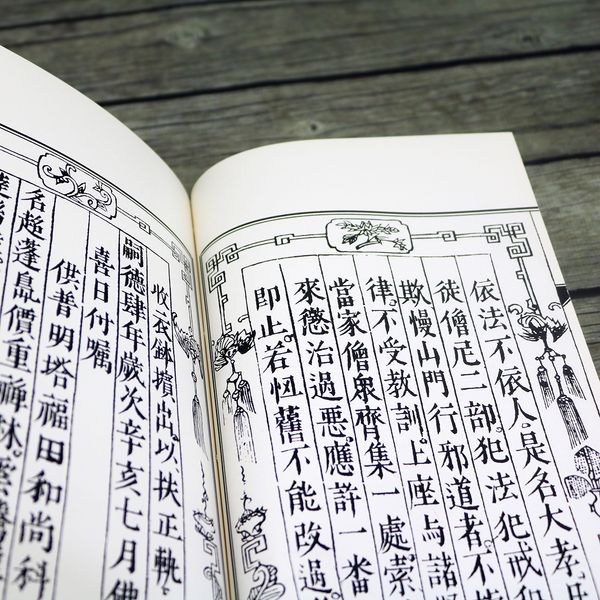 依法不依人。是名大孝。
徒僧尼二部。犯法犯戒和
欺慢山門行邪道者。不
律。不受教訓。上座与諸
當家僧眾齊集一處。索
來懲治過惡。應許一番
即止。若舊不能改過
收衣鉢擯出。以扶正軌
嗣德肆年歲次辛亥七月佛
喜日付囑
供普明塔福田和尚科
名超蓬島價重禅林。